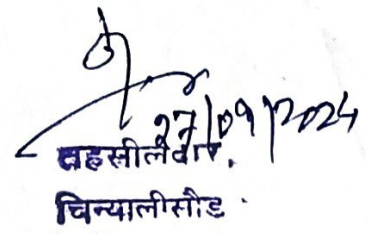 27/09/2024
तहसीलदार,
चिन्यालीसौड़.